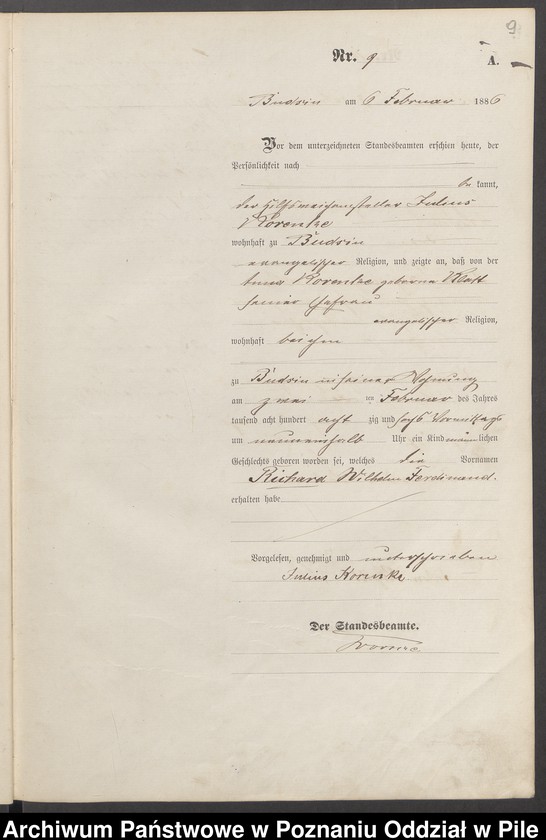 9
Nr. 9
A.
Budsin am 6 Februar 1886
Vor dem unterzeichneten Standesbeamten erschien heute, der
Persönlichkeit nach
be kannt,
der Julius
wohnhaft zu Budsin
evangelischer Religion, und zeigte an, daß von der
geborne Klatt
seiner Ehefrau
evangelischer Religion,
wohnhaft bei ihm
zu Budsin in seiner Wohnung
am zwei ten Februar des Jahres
tausend acht hundert acht zig und sechs Vormittags
um neuneinhalb Uhr ein Kind männlichen
Geschlechts geboren worden sei, welches die Vornamen
Richard Wilhelm Ferdinand.
erhalten habe
Vorgelesen, genehmigt und unterschrieben
Julius
Der Standesbeamte.
Archiwum Państwowe w Poznaniu Oddział w Pile